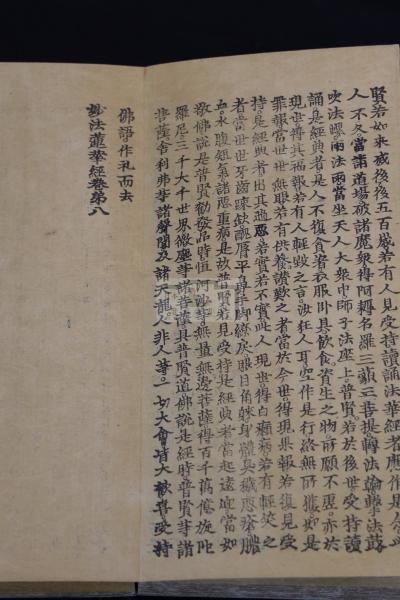 賢若如來滅後後五百歲若有人見受持讀誦法華經者應作是念此
人不久當詣道場破諸魔衆得阿耨多羅三藐三菩提轉法輪擊法鼓
吹法螺雨法雨當坐天人大衆中師子法座上普賢若於後世受持讀
誦是經典者是人不復貪著衣服臥具飲食資生之物所願不虛亦於
現世得其福報若有人輕毀之言汝狂人耳空作是行終無所獲如是
罪報當世世無眼若有供養讚歎之者當於今世得現果報若復見受
持是經典者出其過惡若實若不實此人現世得白癩病若有輕笑之
者當世世牙齒踈缺醜脣平鼻手脚繚戾眼目角睞身體臭穢惡瘡膿
血水腹短氣諸惡重病是故普賢若見受持是經典者當起遠迎當如
敬佛說是普賢勸發品時恒河沙等無量無邊菩薩得百千萬億旋陀
羅尼三千大千世界微塵等諸菩薩具普賢道佛說是經時普賢等諸
菩薩舍利弗等諸聲聞及諸天龍人非人等一切大會皆大歡喜受持
佛語作礼而去
妙法蓮華經卷第八